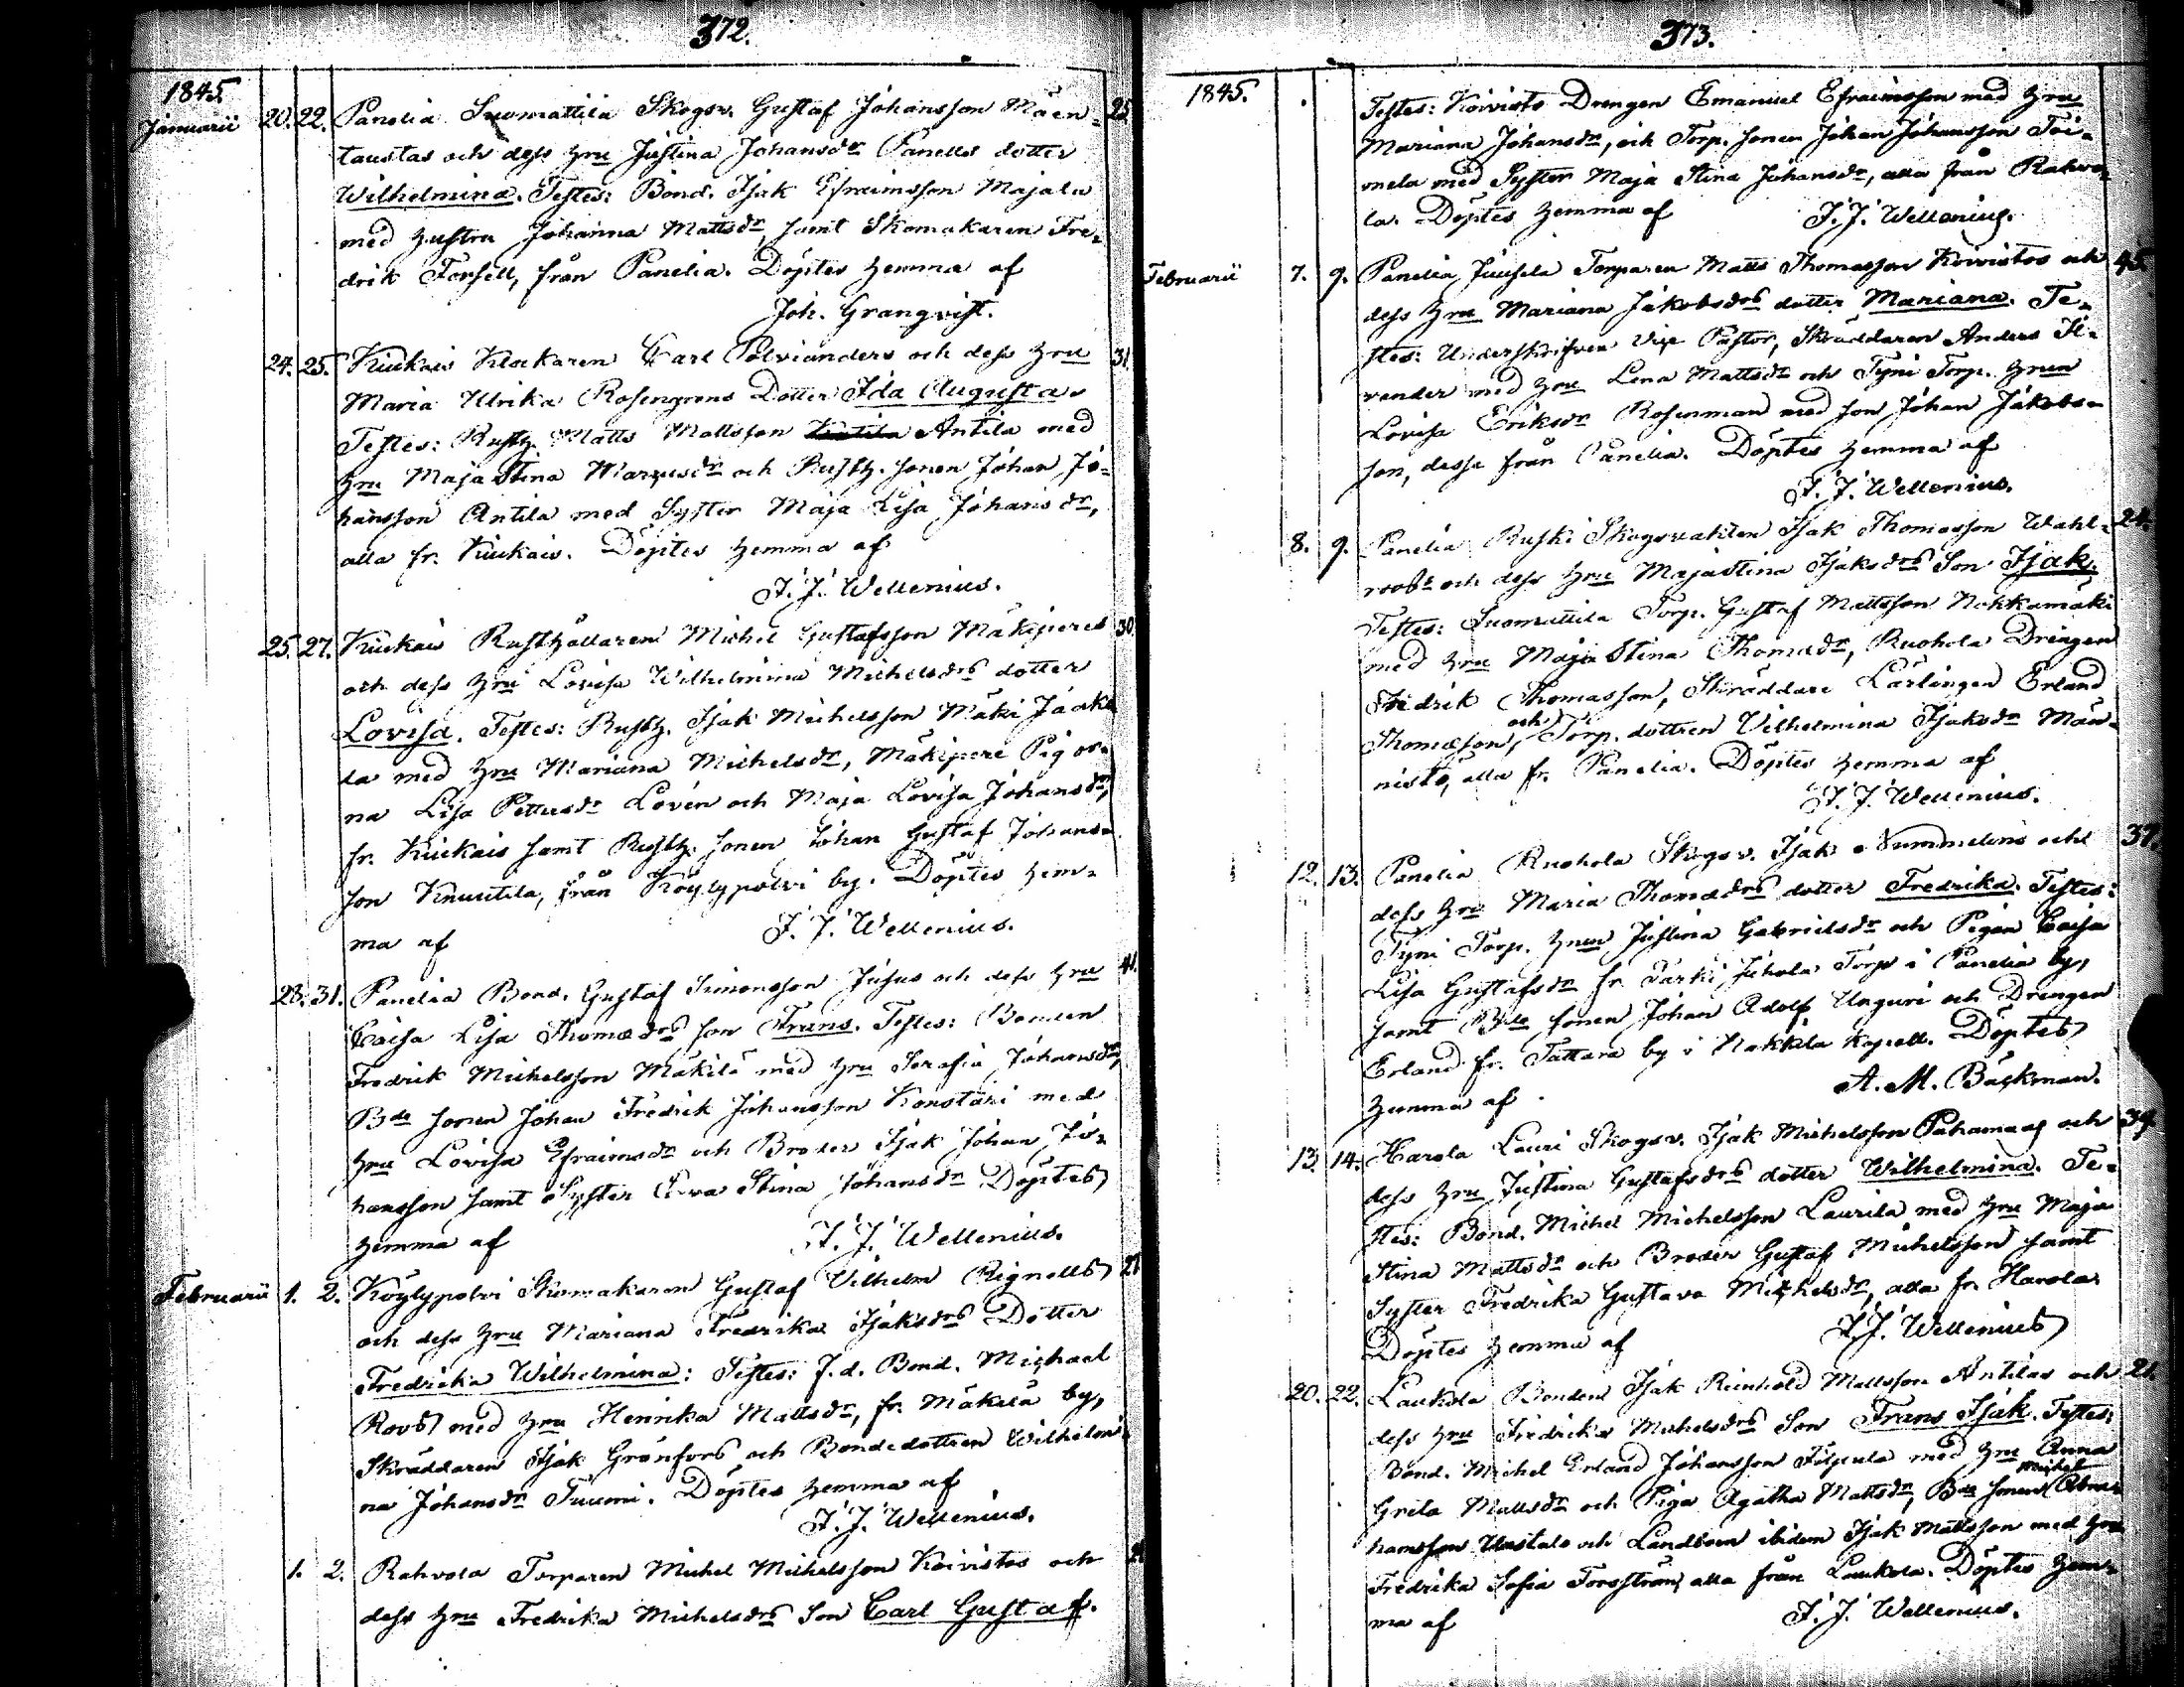 372.
1845.
Januarii 20. 22. Panelia Suomattila Skogsv. Gustaf Johansson Mäen- 25.
taustas och dess hru Justina Johansdr Panells dotter
Wilhelmina. Testes: Bond. Isak Efraimsson Majala
med hustru Johanna Mattsdr, samt Skomakaren Fre-
drik Forsell, från Panelia. Döptes hemma af
Joh. Granqvist.
24. 25. Kiukais Klockaren Carl Polvianders och dess hru 31.
Maria Ulrika Rosengrens Dotter Ida Augusta.
Testes: Rusth. Matts Mattsson Antila med
hru Maja Stina Marcusdr och Rusth. sonen Johan Jo-
hansson Antila med Syster Maja Lisa Johansdr,
alla fr. Kiukais. Döptes hemma af
J. J. Wellenius.
25. 27. Kiukais Rusthållaren Michel Gustafsson Mäkiperes 30.
och dess hru Lovisa Wilhelmina Michelsdrs dotter
Lovisa. Testes: Rusth. Isak Michelsson Mäki Jaako-
la med hru Mariana Michelsdr, Mäkiperi Pigor-
na Lisa Pettersdr Lovén och Maja Lovisa Johansdr,
fr. Kiukais samt Rusth. sonen Johan Gustaf Johans-
son Knuutila, från Köylypolvi by. Döptes hem-
ma af J. J. Wellenius.
28. 31. Panelia Bond. Gustaf Simonsson Jusus och dess hru 41.
Caisa Lisa Thomædrs son Frans. Testes: Bonden
Fredrik Michelsson Mäkilä med hru Serafia Johansdr,
Bde sonen Johan Fredrik Johansson Konstari med
hru Lovisa Efraimsdr och Broder Isak Johan Jo-
hansson samt Syster Eva Stina Johansdr Döptes
hemma af J. J. Wellenius.
Februarii 1. 2. Köylypolvi Skomakaren Gustaf Vilhelm Rignells 27.
och dess hru Mariana Fredrika Isaksdrs Dotter
Fredrika Wilhelmina: Testes: f.d. Bond. Michael
Rovs med hru Henrika Mattsdr, fr. Mäkelä by,
Skräddaren Isak Grönfors och Bondedottren Wilhelmi-
na Johansdr Tuumi. Döptes hemma af
J. J. Wellenius.
1. 2. Rahvola Torparen Michel Michelsson Koivistos och
dess hru Fredrika Michelsdrs Son Carl Gustaf.
373.
1845.
Testes: Koivisto Drengen Emanuel Efraimsson med hru
Mariana Johansdr, och Torp. sonen Johan Johansson Toi-
mela med Syster Maja Stina Johansdr, alla från Rahvo-
la. Döptes hemma af J. J. Wellenius.
Februarii 7. 9. Panelia, Juusela Torparen Matts Thomasson Koivistos och 45.
dess hru Mariana Jakobsdrs dotter Mariana. Te-
stes: Underskrifven Vice Pastor, Skräddaren Anders Il-
vander med hru Lena Mattsdr och Tyni Torp. hrun
Lovisa Eriksdr Rosenman med son Johan Jakobs-
son, desse från Panelia. Döptes hemma af
J. J. Wellenius.
8. 9. Panelia Buski Skogsvakten Isak Thomasson Wahl- 24.
roos och dess hru Maja Stina Isaksdrs Son Isak.
Testes: Suomattila Torp. Gustaf Mattsson Nokkamäki
med hru Maja Stina Thomædr, Ruohola Drengen
Fredrik Thomasson, Skräddare Lärlingen Erland
Thomasson, och Torp. dottren Vilhelmina Isaksdr Män-
nistö, alla fr. Panelia. Döptes hemma af
J. J. Wellenius.
12. 13. Panelia Ruohola Skogsv. Isak Nummelins och 37.
dess hru Maria Thomædrs dotter Fredrika. Testes:
Tyni Torp. hrun Justina Gabrielsdr och Pigan Caisa
Lisa Gustafsdr fr. Parki Juhola Torp i Panelia by,
samt Bde sonen Johan Adolf Unguri och Drengen
Erland fr. Tattara by i Nakkila kapell. Döptes
hemma af A. M. Bäckman.
13. 14. Harola Lauri Skogsv. Isak Michelsson Pahamaas och 39.
dess hru Justina Gustafsdrs dotter Wilhelmina. Te-
stes: Bond. Michel Michelsson Laurila med hru Maja
Stina Mattsdr och Broder Gustaf Michelsson samt
Syster Fredrika Gustava Michelsdr, alla fr. Harola
Döptes hemma af J. J. Wellenius
20. 22. Laukola Bonden Isak Reinhold Mattsson Antilas och 21.
dess hru Fredrika Michelsdrs Son Frans Isak. Testes:
Bond. Michel Erland Johansson Filpula med hru Anna
Greta Mattsdr och Piga Agatha Mattsdr, Bde sonen Michel Abra-
hamsson Uustalo och Landbon ibidem Isak Mattsson med hru
Fredrika Sofia Forsström, alla från Laukola. Döptes hem-
ma af J. J. Wellenius.